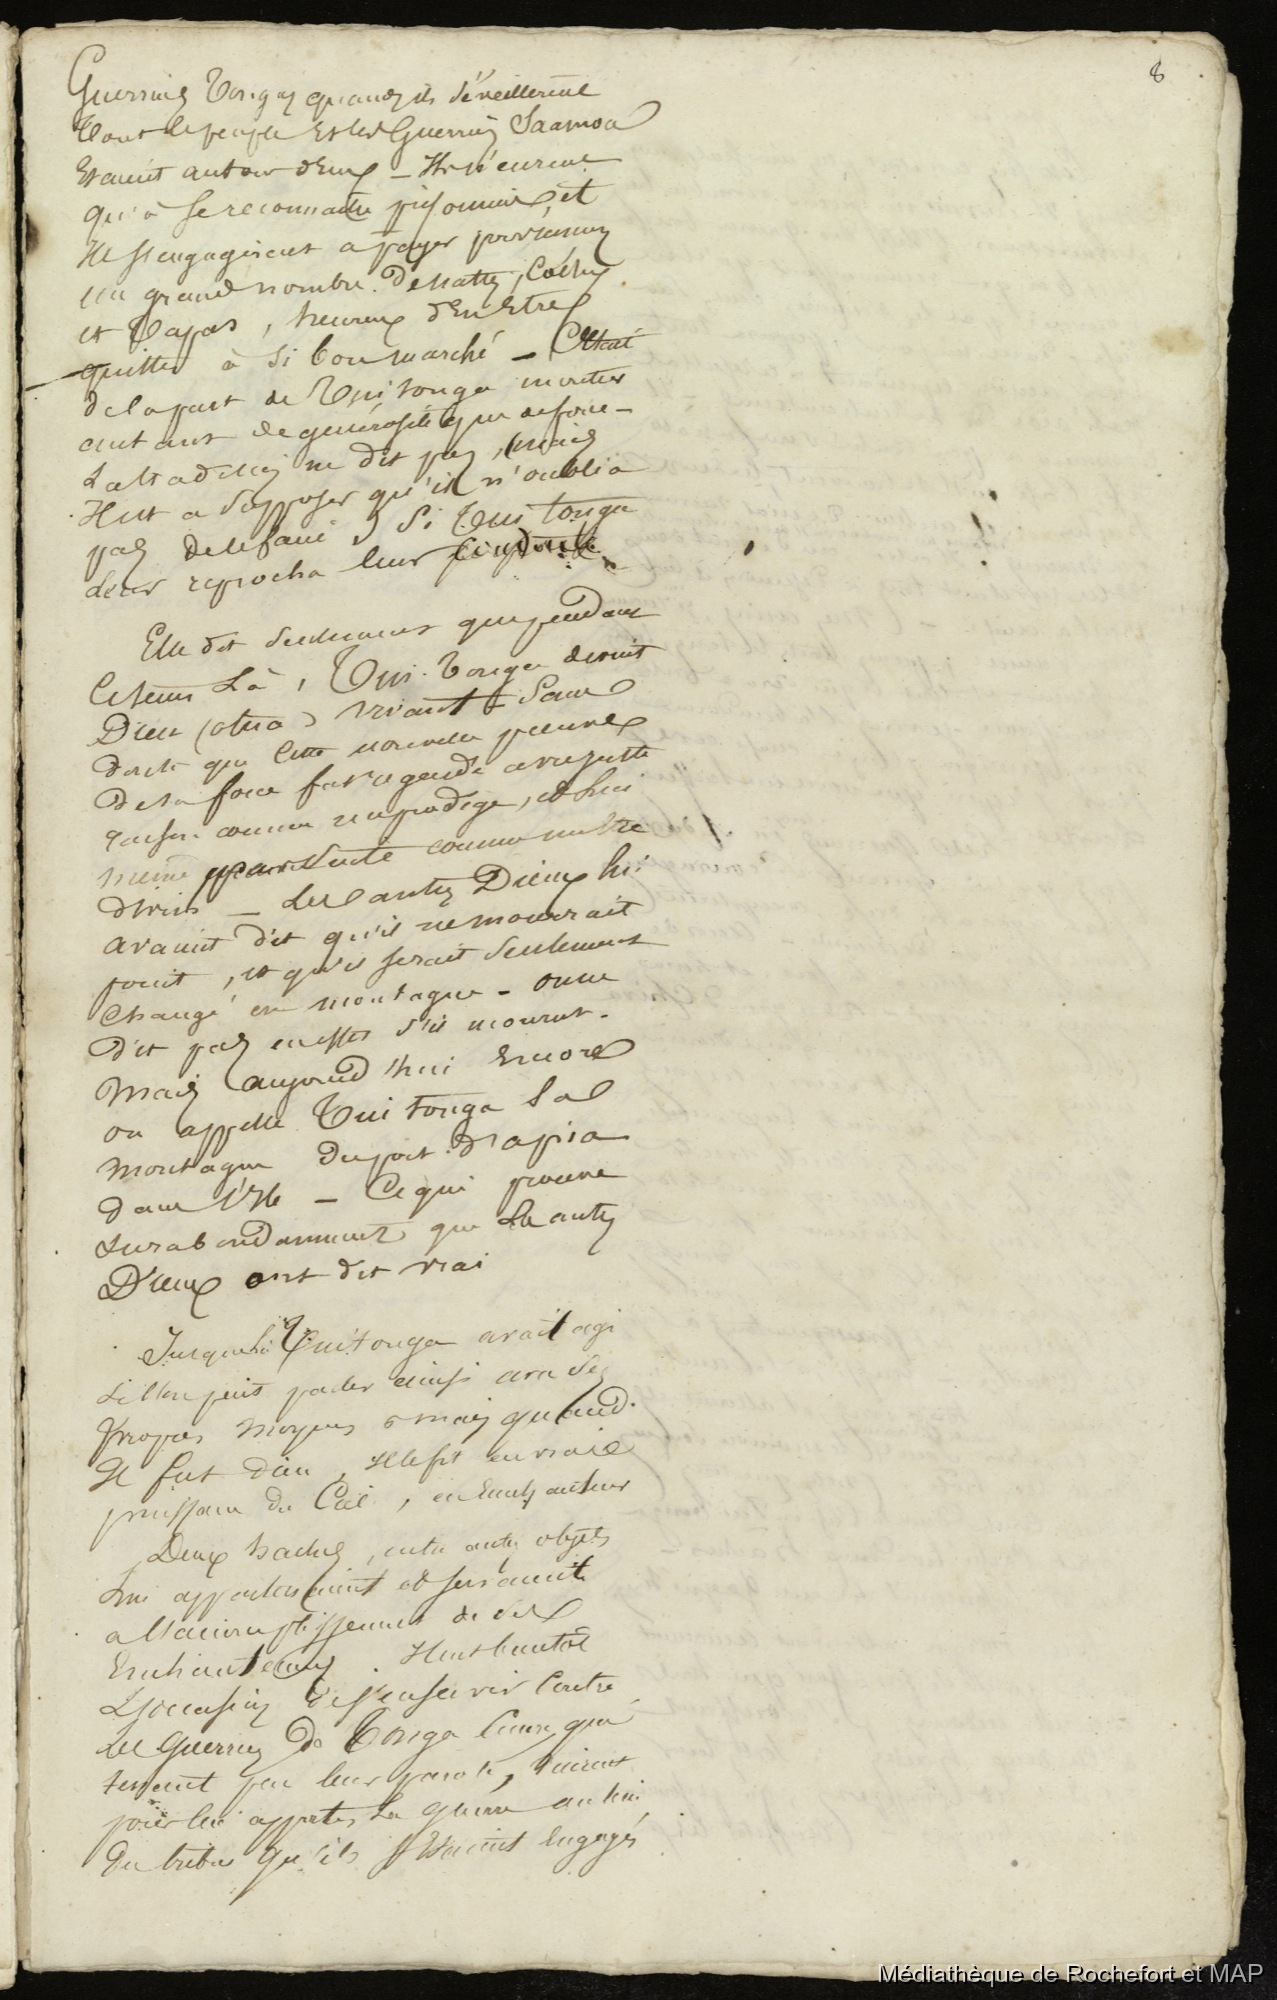 8
Guerriers Tongas quand ils s'éveillerent
Tout le peuple et les Guerriers Saamoa
Etaient autour d'eux – Ils n'eurent
qu'à se reconnaitre prisonniers, et
Ils s'engagerent a payer pour rançon
un grand nombre de nattes,
et Tapas, heureux d'en etre
quittes à si bon marché – C'était
de la part de Tui tonga montrer
autant de générosité que de force –
La tradition ne dit pas, mais
Il est a supposer qu'il n'oublia
pas de le faire, Si Tui tonga
leur reprocha leur
Elle dit seulement que pendant
ce tems là, Tui-Tonga devint
Dieu (atua) vivant – Sans
doute que cette nouvelle preuve
de sa force fut regardé avec juste
raison comme un prodige, et lui
même comme un être
divin – Les autres Dieux lui
avaient dit qu'il ne mourrait
point, et qu'il serait seulement
changé en montagne – on ne
dit pas en effet s'il mourut –
Mais aujourd'hui encore
on appelle Tui tonga la
montagne du port d'apia
dans l'île – Ce qui prouve
surabondamment que les autres
Dieux ont dit vrai
Jusque là Tuitonga avait agi
si l'on peut parler ainsi avec ses
propres moyens, mais quand
Il fut dieu, Il le fit en vraie
puissance du Ciel, en enchanteur
Deux haches, entre autres objets
lui appartenaient et servaient
a l'accomplissement de ses
Enchantemens. Il eut bientôt
L'occasion de s'en servir contre
les Guerriers de Tonga
tenant peu leur parole, vinrent
pour lui apporter la guerre au lieu
du tribut qu'ils s'etaient engagés
Médiathèque de Rochefort et MAP